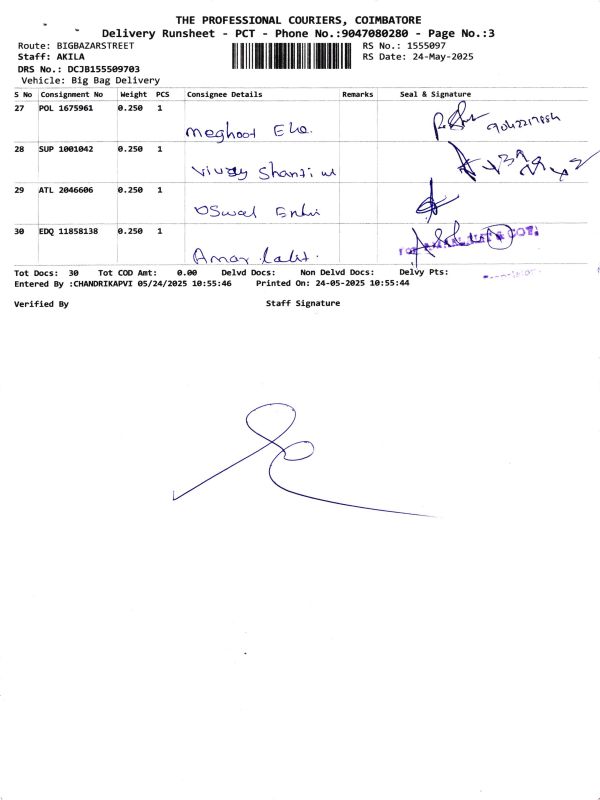 THE PROFESSIONAL COURIERS, COIMBATORE
Delivery Runsheet - PCT - Phone No.:9047080280 - Page No.:3
Route: BIGBAZARSTREET RS No.: 1555097
Staff: AKILA RS Date: 24-May-2025
DRS No.: DCJB155509703
Vehicle: Big Bag Delivery
S No Consignment No Weight PCS Consignee Details Remarks Seal & Signature
27 POL 1675961 0.250 1
Meghoot
28 SUP 1001042 0.250 1
Shanti
29 ATL 2046606 0.250 1
Oswal
30 EDQ 11858138 0.250 1
Amar Lalit.
Tot Docs: 30 Tot COD Amt: 0.00 Delvd Docs: Non Delvd Docs: Delvy Pts:
Entered By :CHANDRIKAPVI 05/24/2025 10:55:46 Printed On: 24-05-2025 10:55:44
Verified By Staff Signature